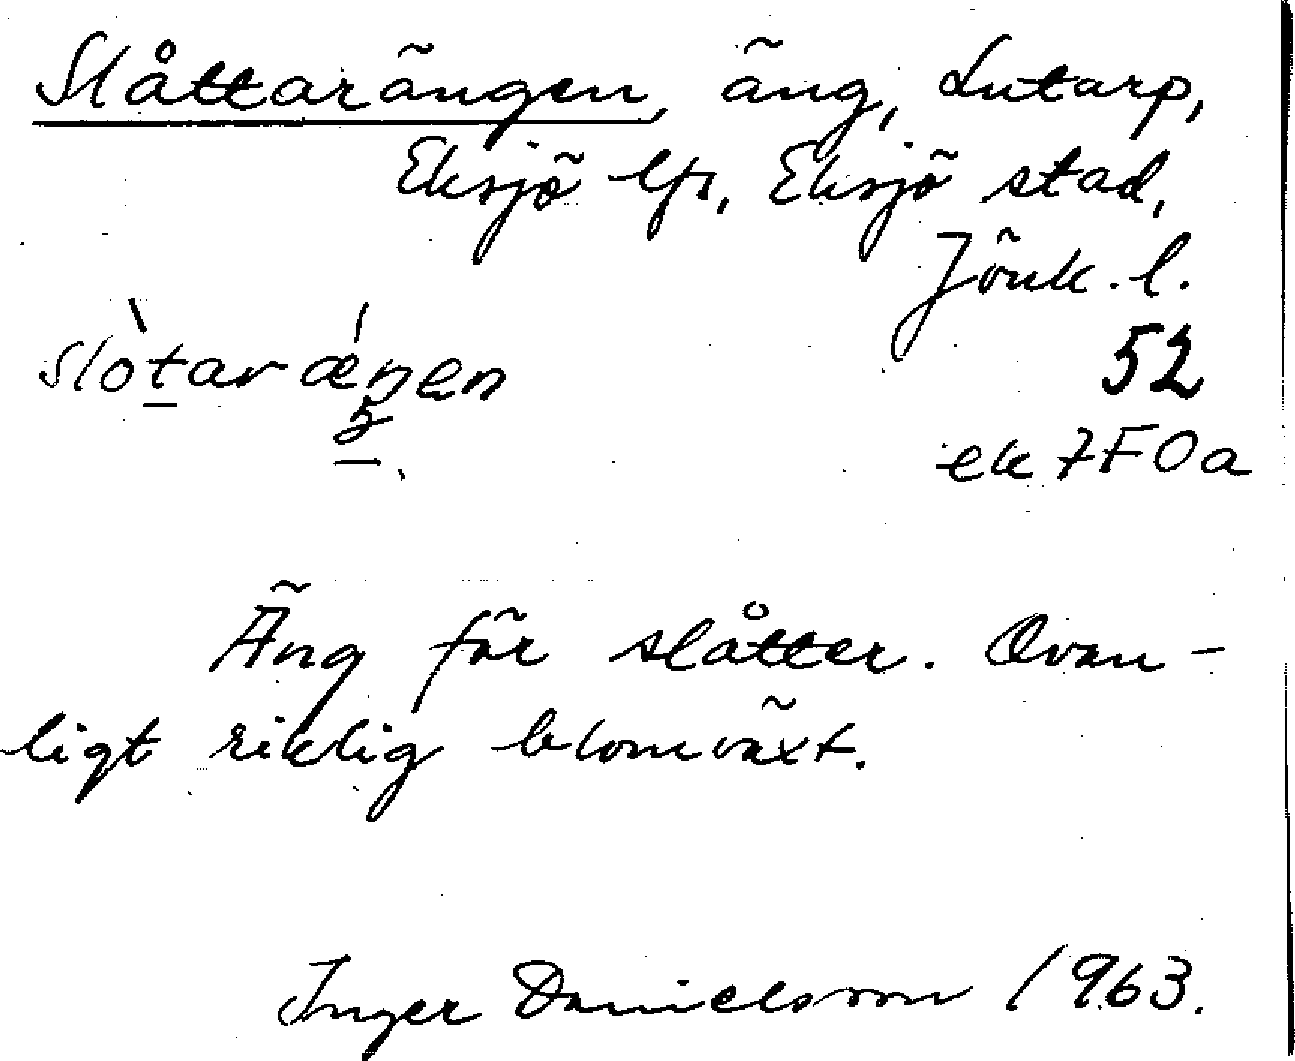 Slåttarängen, äng, Lutarp,
Eksjö lfs, Eksjö stad,
Jönk. l.
slòtarǽŋen
52
ek 7F0a
Äng för slåtter. Ovan-
ligt riklig blomväxt.
Inger Danielsson 1963.